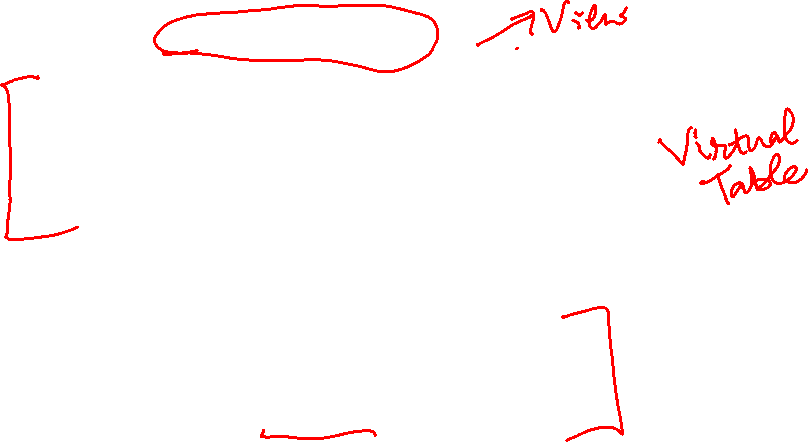 View
Virtual
Table